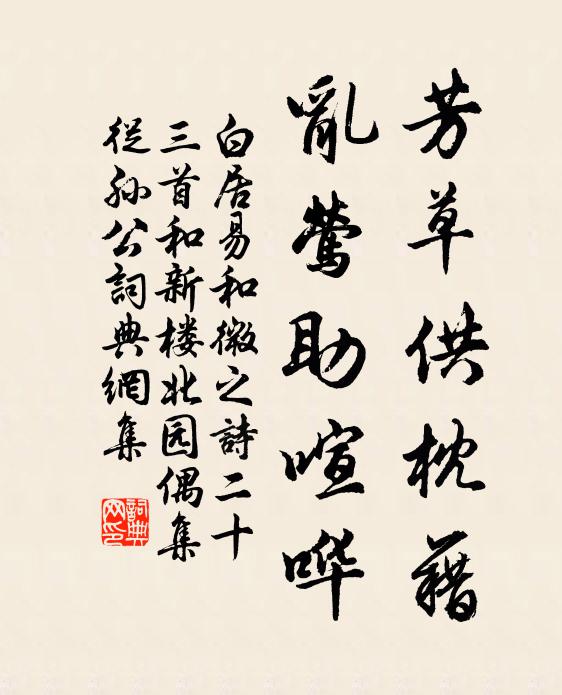 芳草供枕藉
亂鶯助喧哗
白居易和微之詩二十
三首和新楼北园偶集
從孙公詞典網集
詞典
网印